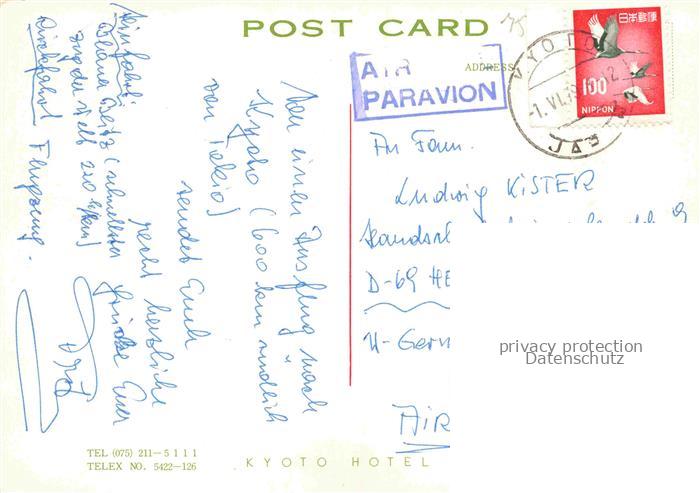 POST CARD
75
日本郵便
100
NIPPON
KYOTO
-1.VI.
JAPAN
AIR
PARAVION
ADDRESS
An Fam.
Ludwig KISTER
Landsch
D-69 HE
W-Germ
AIR
Von einem Ausflug nach
Kyoto (600 km südlich
von Tokio)
sendet Euch
recht herzliche
Grüße Euer
Hinfahrt
Blauer Blitz (schnellster
Zug der Welt 210 km/h)
Rückfahrt Flugzeug.
TEL (075) 211-5111
TELEX NO. 5422-126
KYOTO HOTEL
privacy protection
Datenschutz